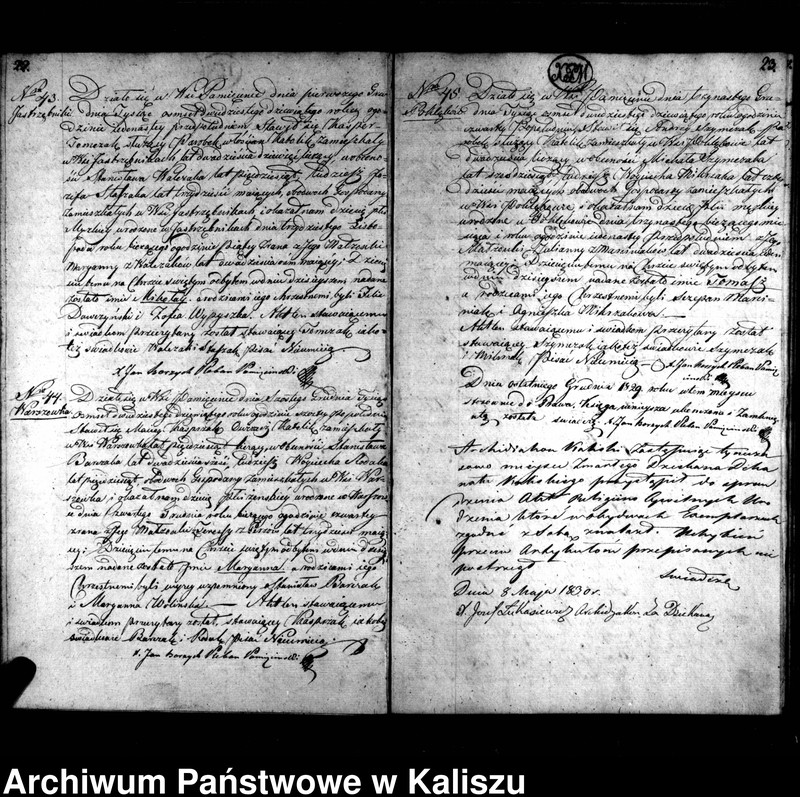 22.
Nro 43. Działo się w Wsi Pamięcinie dnia pierwszego Gru
Jastrzębniki dnia Tysiąc osmset dwudziestego dziewiątego roku ogo
dzinie jedenastej przedpołudniem Stawił się Kasper
Tomczak służący Parobek włościan Katolik zamieszkały
w Wsi Jastrzębnikach lat dwadzieścia dziewięć liczący w obecno
ści Stanisława Walczaka lat pięćdziesiąt, tudzież Jó
zefa Stasiaka lat trzydzieści mających, obodwóch Gospodarzy
zamieszkałych w Wsi Jastrzębnikach i okazał nam dziecię płci
Męzkiej urodzone w Jastrzębnikach dnia trzydziestego Listo
pada roku bieżącego ogodzinie piątej zrana z Jego Małżonki
Maryanny z Walczaków lat dwadzieścia mającej. Dziecię
ciu temu na Chrzcie świętym odbytem w dniu dzisiejszem nadane
zostało imie Mikołay, a rodzicami jego Chrzestnemi byli Felix
Dawczyński i Zofia Wypyszka. Akt ten stawaiącemu
i swiadkom przeczytany został stawaiący Tomczak iakoteż
świadkowie Walczak i Stasiak pisać Nieumieią
X Jan Korzych Pleban Pamięcinski
Nro 44. Działo się w Wsi Pamięcinie dnia Szóstego Grudnia Tysiąc
Warszówka osmset dwudziestego dziewiątego roku ogodzinie czwartej popołudniu
Stawił się Maciej Kasprzak Owczarz Katolik zamieszkały
w Wsi Warszówka lat pięćdziesiąt liczący w obecności Stanisława
Barczaka lat dwadzieścia sześć, tudzież Woyciecha Rodaka
lat pięćdziesiąt obodwóch Gospodarzy Zamieszkałych w Wsi War
szówka, i okazał nam dziecię płci żenskiej urodzone w Warszow
ce dnia Czwartego Grudnia roku bieżącego ogodzinie czwartej
zrana z Jego Małżonki Teressy lat trzydzieści mają
cej. Dziecięciu temu na Chrzcie świętym odbytem w dniu dzisiej
szem nadane zostało Imie Maryanna, a rodzicami jego
Chrzestnemi byli wyżej wspomniony Stanisław Barczak
i Maryanna Wolińska. Akt ten stawaiącemu
i swiadkom przeczytany został, stawaiący Kasprzak iakoteż
świadkowie Barczak i Rodak pisać Nieumieią
X. Jan Korzych Pleban Pamięcinski
XXIII
23.
Nro 45. Działo się w Wsi Pamięcinie dnia trzynastego Gru
Pokłękow dnia Tysiąc osmset dwudziestego dziewiątego roku ogodzinie
czwartej popołudniu Stawił się Andrzej Szymczak pa
robek służący Katolik zamieszkały w Wsi Pokłękowie lat
dwadzieścia liczący w obecności Michała Szymczaka
lat sześćdziesiąt, tudzież Woyciecha Mikszaka lat
mającym obodwóch Gospodarzy zamieszkałych
w Wsi Pokłękowie i okazał nam dziecię płci męzkiej
urodzone w Pokłękowie dnia trzynastego bieżącego mie
siąca i roku ogodzinie jedenastej przedpołudniem z Jego
Małżonki Julianny z Marciniaków lat dwadzieścia
mającej. Dziecięciu temu na Chrzcie świętym odbytem
w dniu dzisiejszem nadane zostało imie Tomasz,
a rodzicami jego Chrzestnemi byli Szczepan Marci
niak i Agnieszka Mikszakowa.
Akt ten stawaiącemu i swiadkom przeczytany został
stawaiący Szymczak iakoteż świadkowie Szymczak
i Mikszak Pisać Nieumieią X. Jan Korzych Pleban Pamię
cinski
Dnia ostatniego Grudnia 1829 roku w tem miejscu
stosownie do Prawa, Księga niniejsza ukończona i Zamknię
ta została świadczę. X Jan Korzych Pleban Pamięcinski
Archidiakon Kaliski Zastępując tymcza
sowo miejsce Zmarłego Dziekana Deka
natu Kaliskiego przystąpił do spraw
dzenia Akt Religijno Cywilnych Uro
dzenia które w obydwoch Exemplarzach
zgodne z Sobą znalazł Uchybień
przeciw Artykułów przepisanych nie
postrzegł
Swiadczę
Dnia 8 Maja 1830 r.
X Josef Łukasiewicz Archidiakon Za Dziekana
Archiwum Państwowe w Kaliszu